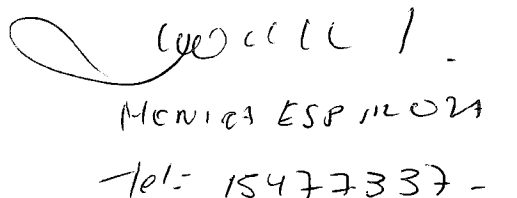 MONICA ESPINOZA
Tel: 15477337-